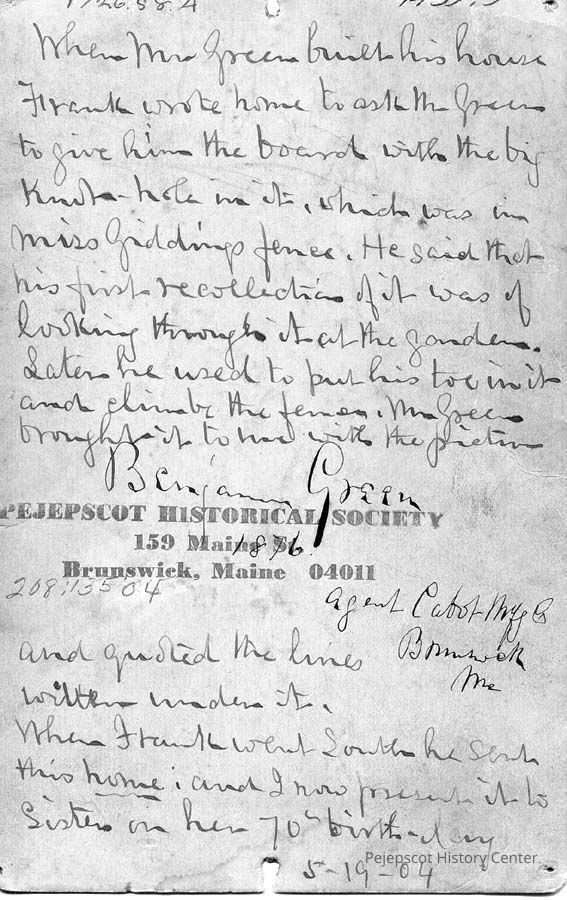 When Mr Green built his house
Frank wrote home to ask Mr Green
to give him the board with the big
Knot-hole in it, which was in
Miss Giddings fence. He said that
his first recollection of it was of
looking through it at the garden.
Later he used to put his toe in it
and climb the fence. Mr Green
brought it to me with the picture
Benjamin Green
PEJEPSCOT HISTORICAL SOCIETY
159 Maine St.
1876.
Brunswick, Maine 04011
208.13504
Agent Cabot Mfg Co
Brunswick
Me
and quoted the lines
written under it.
When Frank went South he sent
this home; and I now present it to
Sister on her 70th birth-day
5-19-04
Pejepscot History Center.